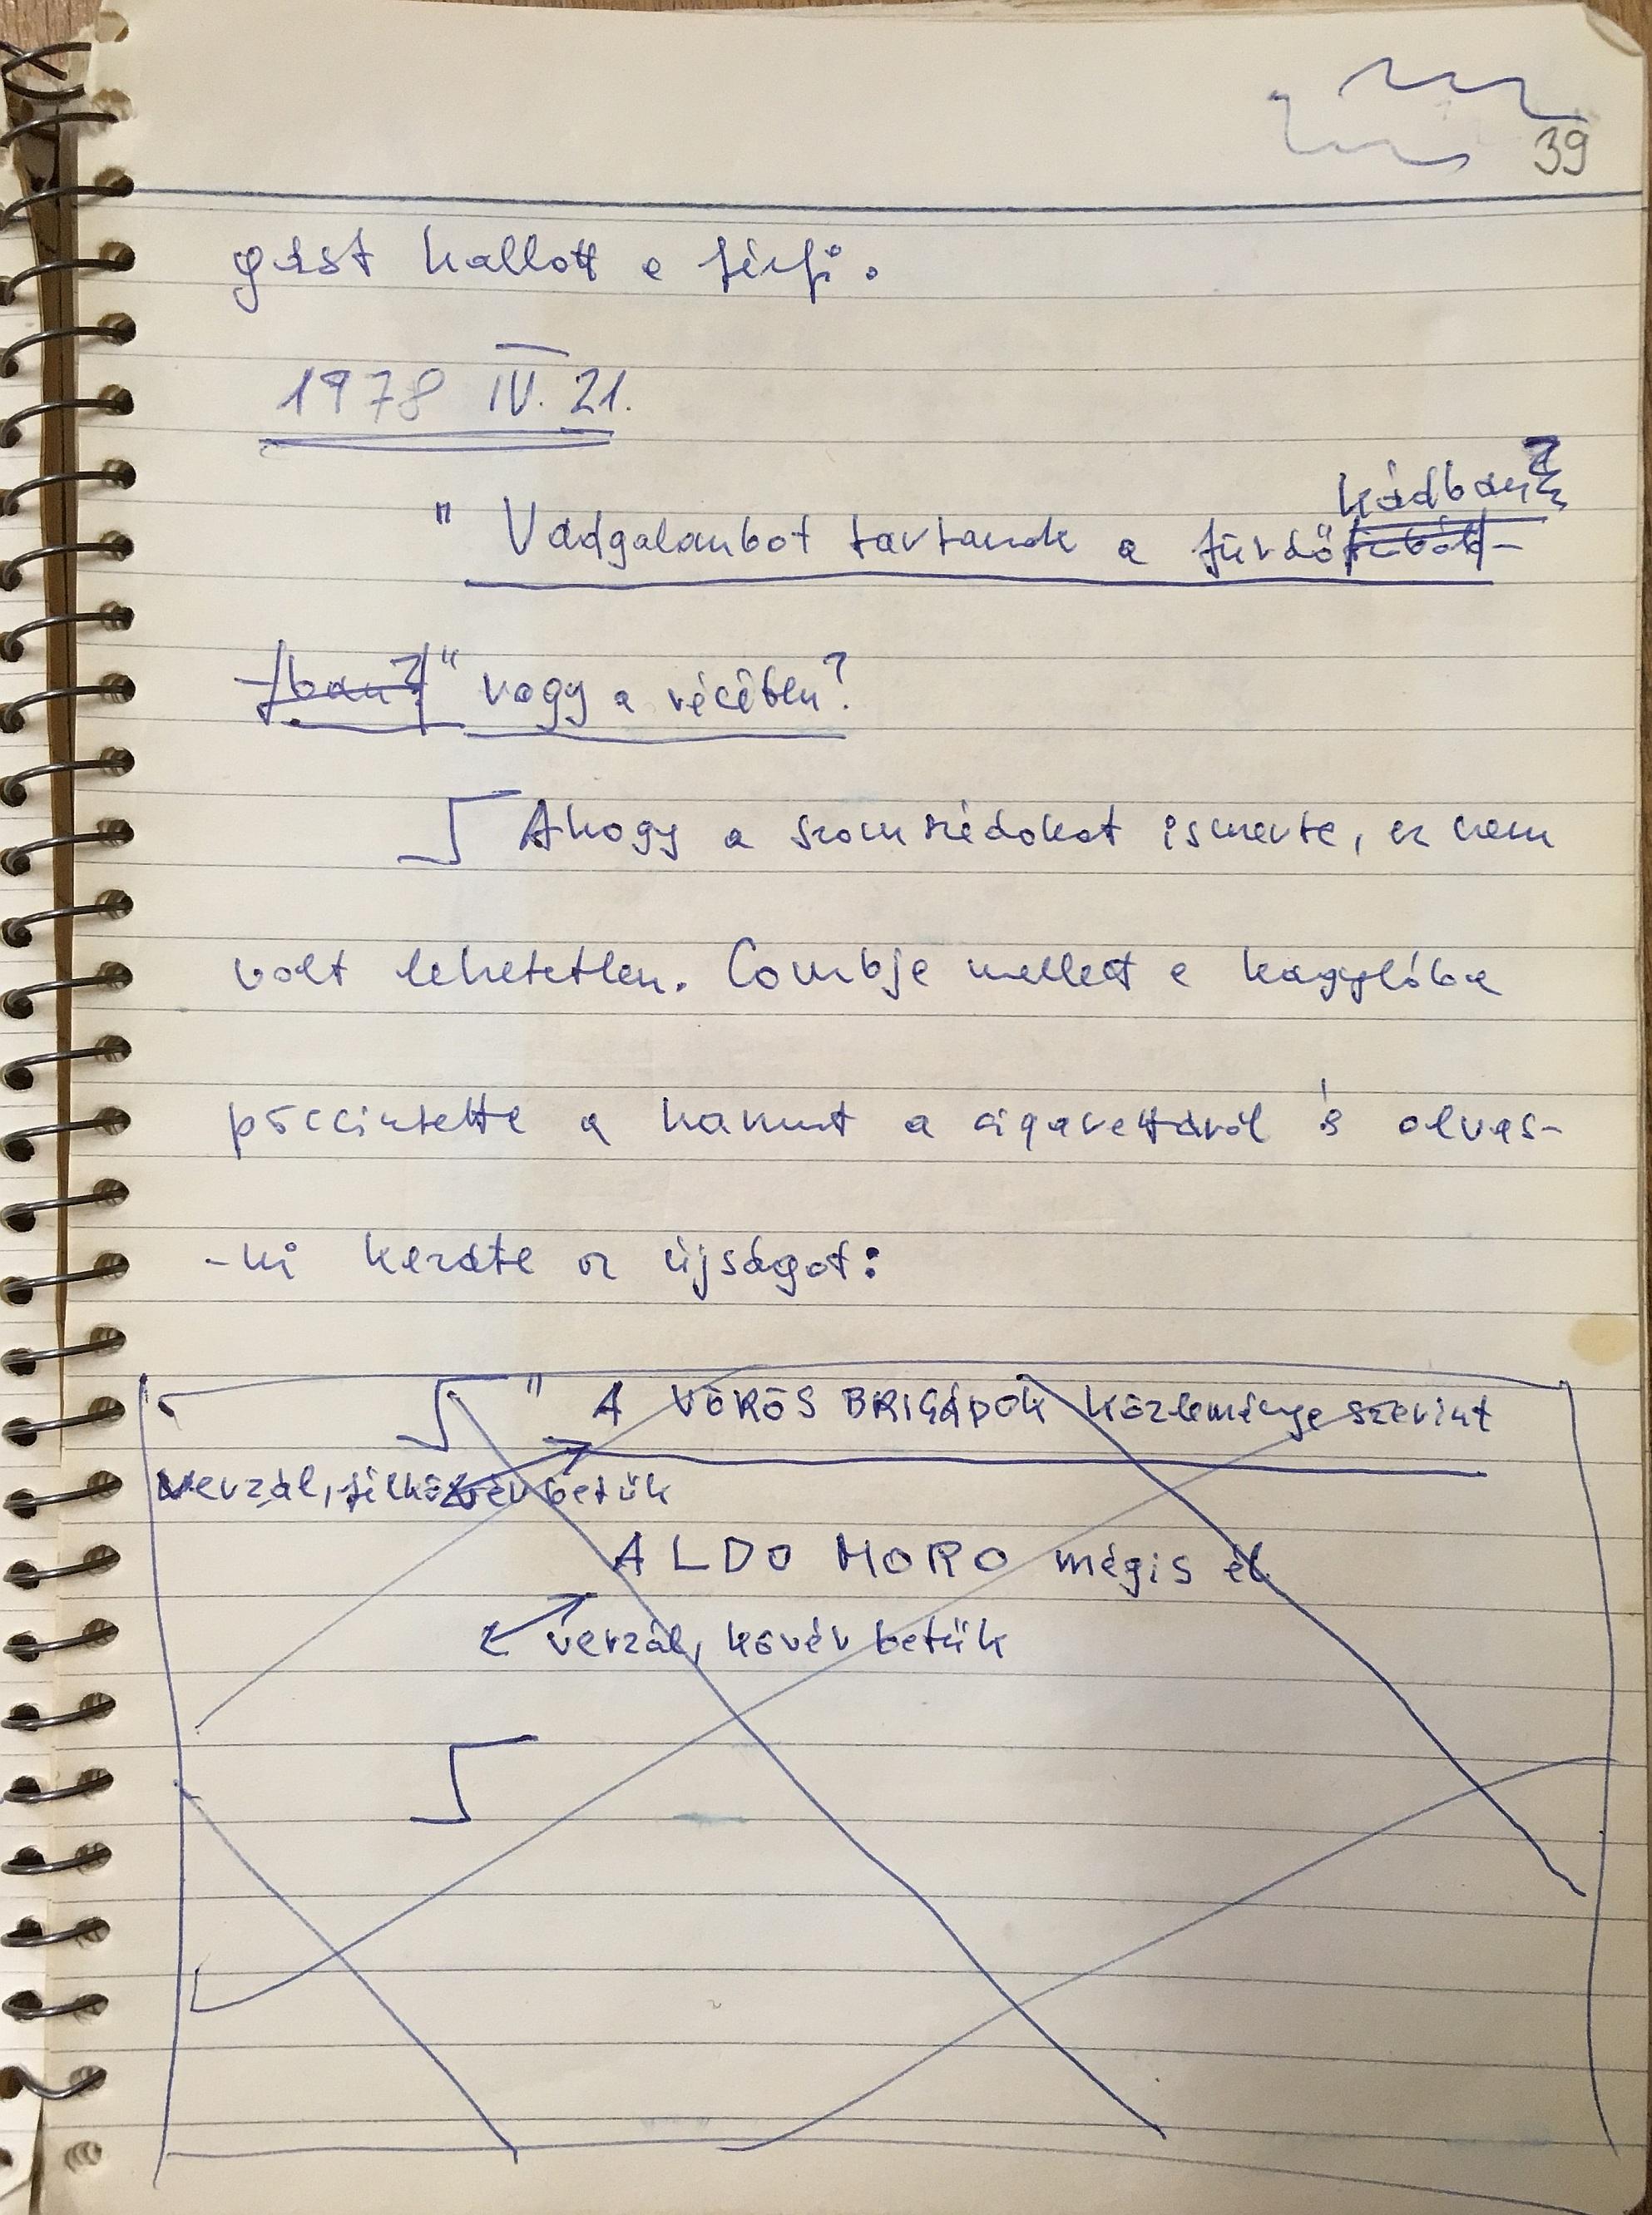 39
gást hallott a férfi.
1978 IV. 21.
kádban?
" Vadgalambot tartanak a fürdőszobá-
-ban?" vagy a vécében?
Ahogy a szomszédokat ismerte, ez nem
volt lehetetlen. Combje mellett a kagylóba
pöccintette a hamut a cigarettáról és olvas-
-ni kezdte az újságot:
" A VÖRÖS BRIGÁDOK közleménye szerint
verzál, félkövér betük
ALDO MORO mégis él
verzál, kövér betük